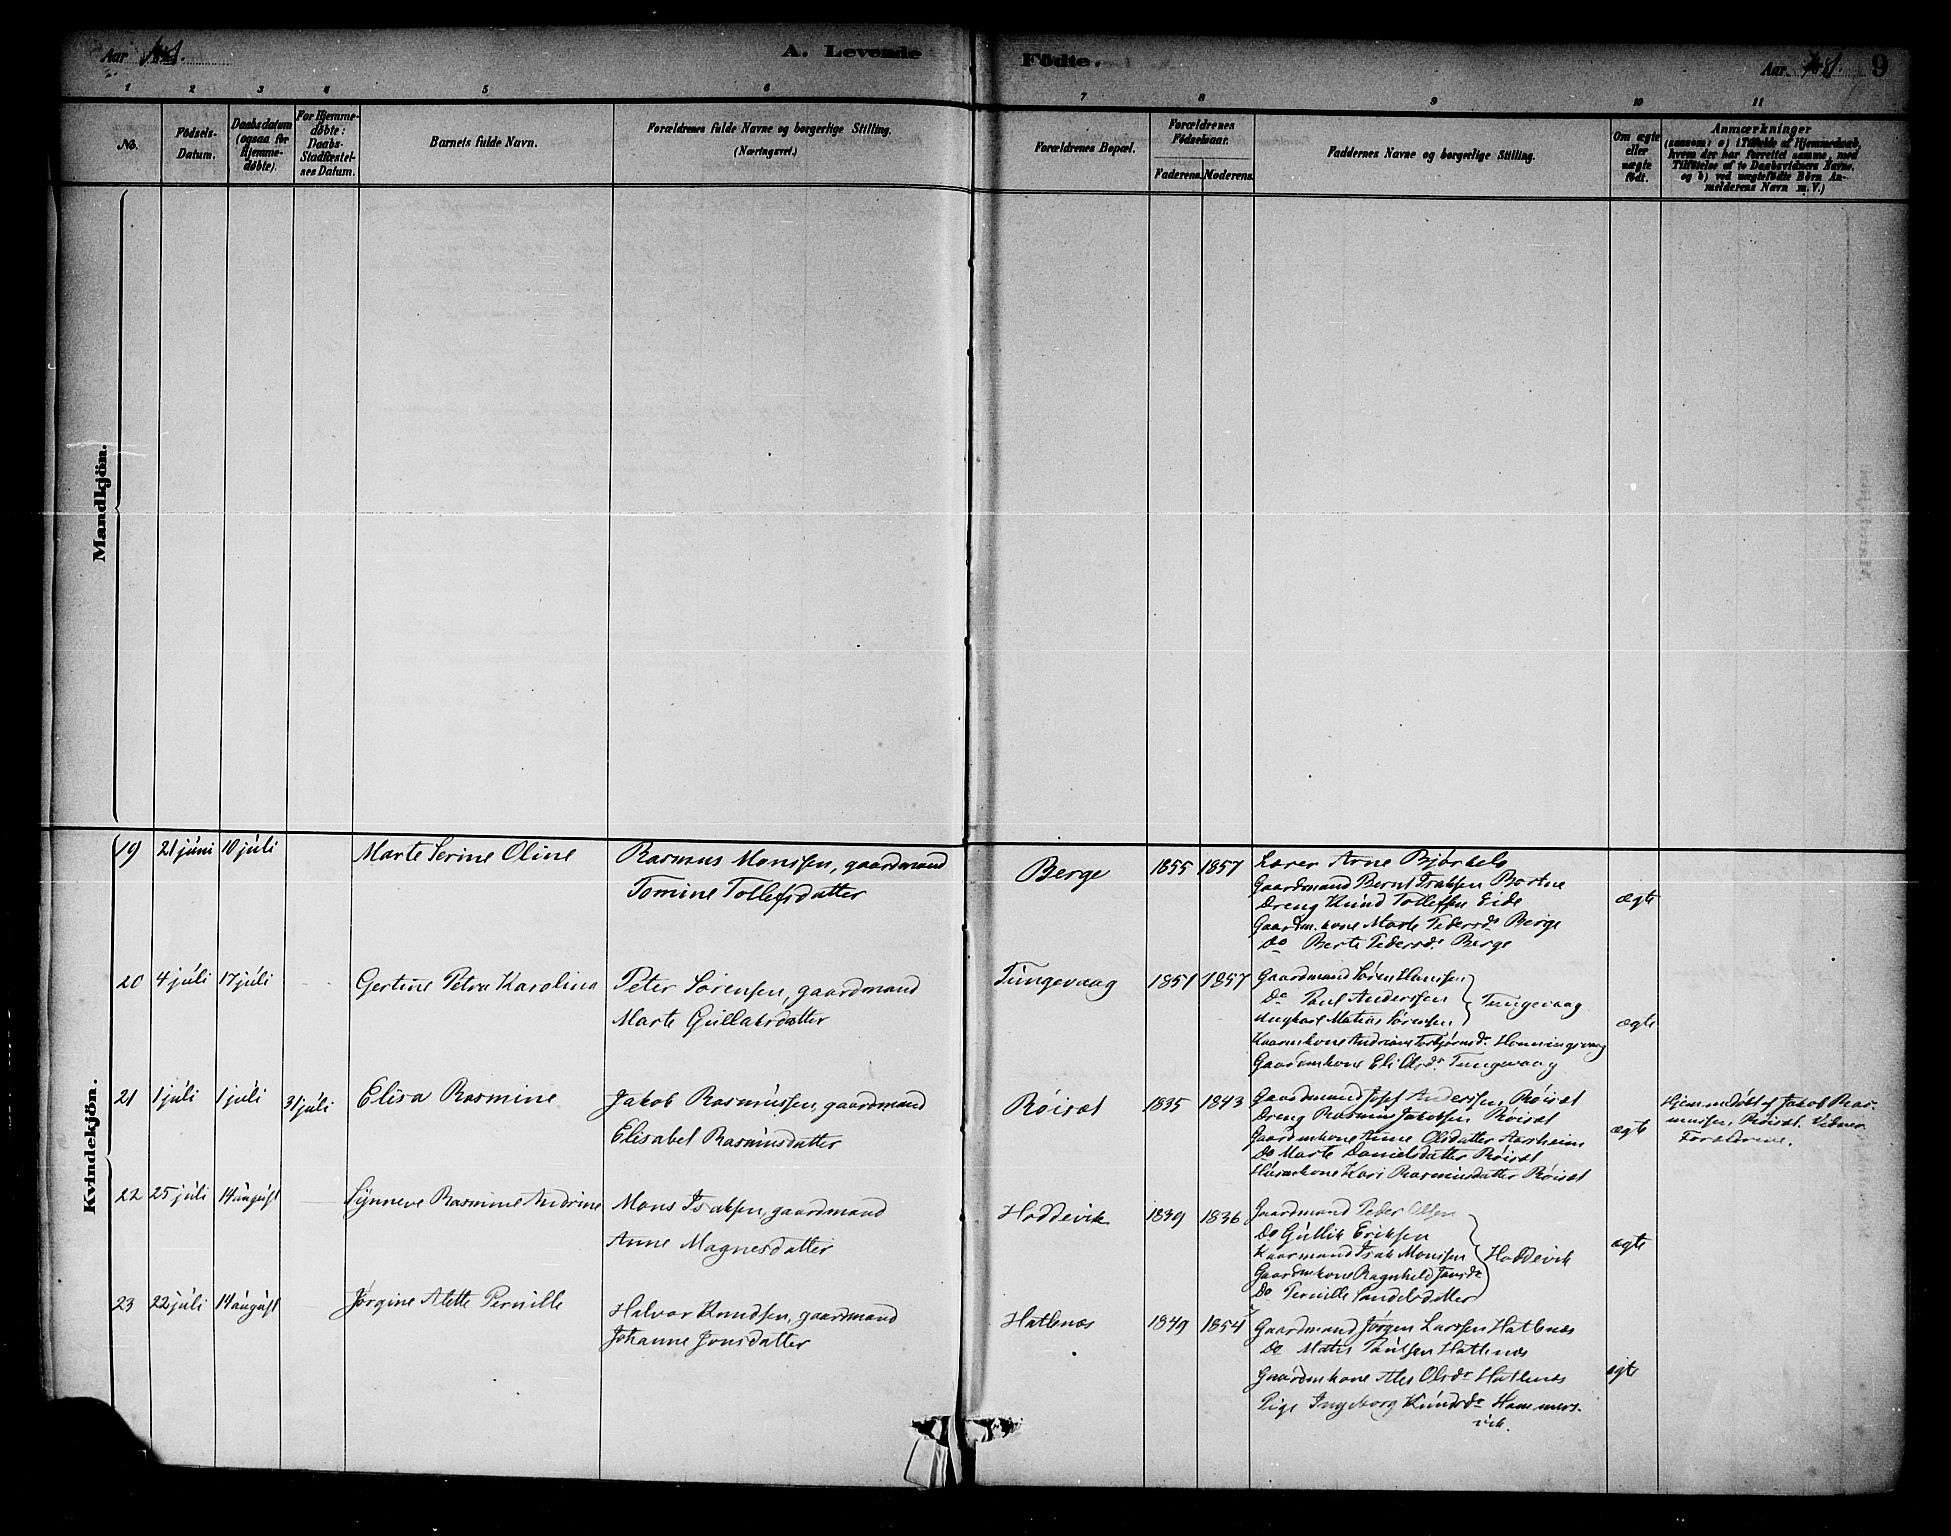 Aar 1881.
A. Levende
Födte.
Aar 1881.
9
1 2 3 4 5 6 7 8 9 10 11
No.
Födsels-
Datum.
Daabsdatum
(ogsaa for
Hjemme-
døbte).
For Hjemme-
døbte:
Daabs-
Stadfæstel-
ses Datum.
Barnets fulde Navn.
Forældrenes fulde Navne og borgerlige Stilling.
(Næringsvei.)
Forældrenes Bopæl.
Forældrenes
Födselsaar.
Faderens. Moderens.
Faddernes Navne og borgerlige Stilling.
Om ægte
eller
uægte
født.
Anmærkninger
(saasom: a) i Tilfælde af Hjemmedaab,
hvem der har forrettet samme, med
Tilföielse af to Daabsvidners Navne,
og b) ved uægtefödte Börn An-
melderens Navn m. V.)
Mandkjön.
Kvindekjön.
19 21 juni 10 juli Marte Serine Oline Rasmus Monssen, gaardmand
Tomine Tollefsdatter
Berge 1855 1857 Lærer Arne Bjørkelo
Gaardmand Bernt Isaksen Bortne
Dreng Knud Tollefsen Eide
Gaardm.kone Marte Pedersdr Berge
Do Berte Pedersdr Berge
ægte
20 4 juli 17 juli Gertine Petra Karolina Peter Sørensen, gaardmand
Marte Gullaksdatter
Tungevaag 1851 1857 Gaardmand Søren Hanssen
Do Paul Anderssen
Ungkarl Matias Sørensen
Tungevaag
Kaarmkone Andrine Torbjørnsdr Honningsvaag
Gaardmkone Eli Olsdr Tungevaag
ægte
21 1 juli 1 juli 31 juli Elisa Rasmine Jakob Rasmussen, gaardmand
Elisabet Rasmusdatter
Røiset 1835 1843 Gaardmand Josef Anderssen Røiset
Dreng Rasmus Jakobsen Røiset
Gaardmkone Anne Olsdatter Aarsheim
Do Marte Danielsdatter Røiset
Huusmkone Kari Rasmusdatter Røiset
ægte
Hjemmedøbt af Jakob Ras-
mussen, Røiset. Vidner
Forældrene.
22 25 juli 14 august Synneve Rasmine Andrine Mons Isaksen, gaardmand
Anne Magnesdatter
Hoddevik 1839 1836 Gaardmand Peder Olsen
Do Gullik Eriksen
Kaarmand Isak Monssen
Gaardmkone Ragnhild Jansdr
Do Pernille Sandelsdatter
Hoddevik
ægte
23 22 juli 14 august Jørgine Alette Pernille Halvor Knudsen, gaardmand
Johanne Jonsdatter
Hatlenæs 1849 1854 Gaardmand Jørgen Larssen Hatlenæs
Do Matis Paulsen Hatlenæs
Gaardmkone Ales Olsdr Hatlenæs
Pige Ingeborg Knudsdr Hammers-
vik.
ægte